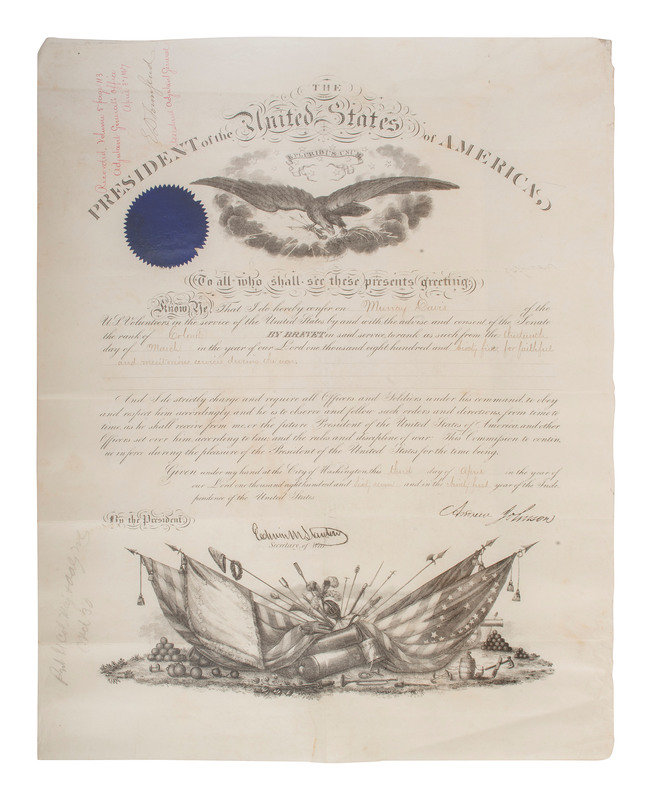 Recorded, Volume 8 Page 113
Adjutant General's Office
April 3d 1867
Assistant Adjutant General
THE
PRESIDENT of the United States of AMERICA,
E PLURIBUS UNUM
To all who shall see these presents greeting:
Know Ye, That I do hereby confer on Murray Davis of the
U.S. Volunteers in the service of the United States by and with the advice and consent of the Senate
the rank of Colonel BY BREVET in said service, to rank as such from the thirteenth
day of March in the year of our Lord one thousand eight hundred and sixty five, for faithful
and meritorious services during the war.
And I do strictly charge and require all Officers and Soldiers under his command, to obey
and respect him accordingly: and he is to observe and follow such orders and directions, from time to
time, as he shall receive from me, or the future President of the United States of America, and other
Officers set over him, according to law, and the rules and discipline of war. This Commission to contin-
ue in force during the pleasure of the President of the United States, for the time being.
Given under my hand at the City of Washington, this third day of April in the year of
our Lord one thousand eight hundred and sixty seven and in the ninety first year of the Inde-
pendence of the United States
By the President
Andrew Johnson
Edwin M Stanton
Secretary of War